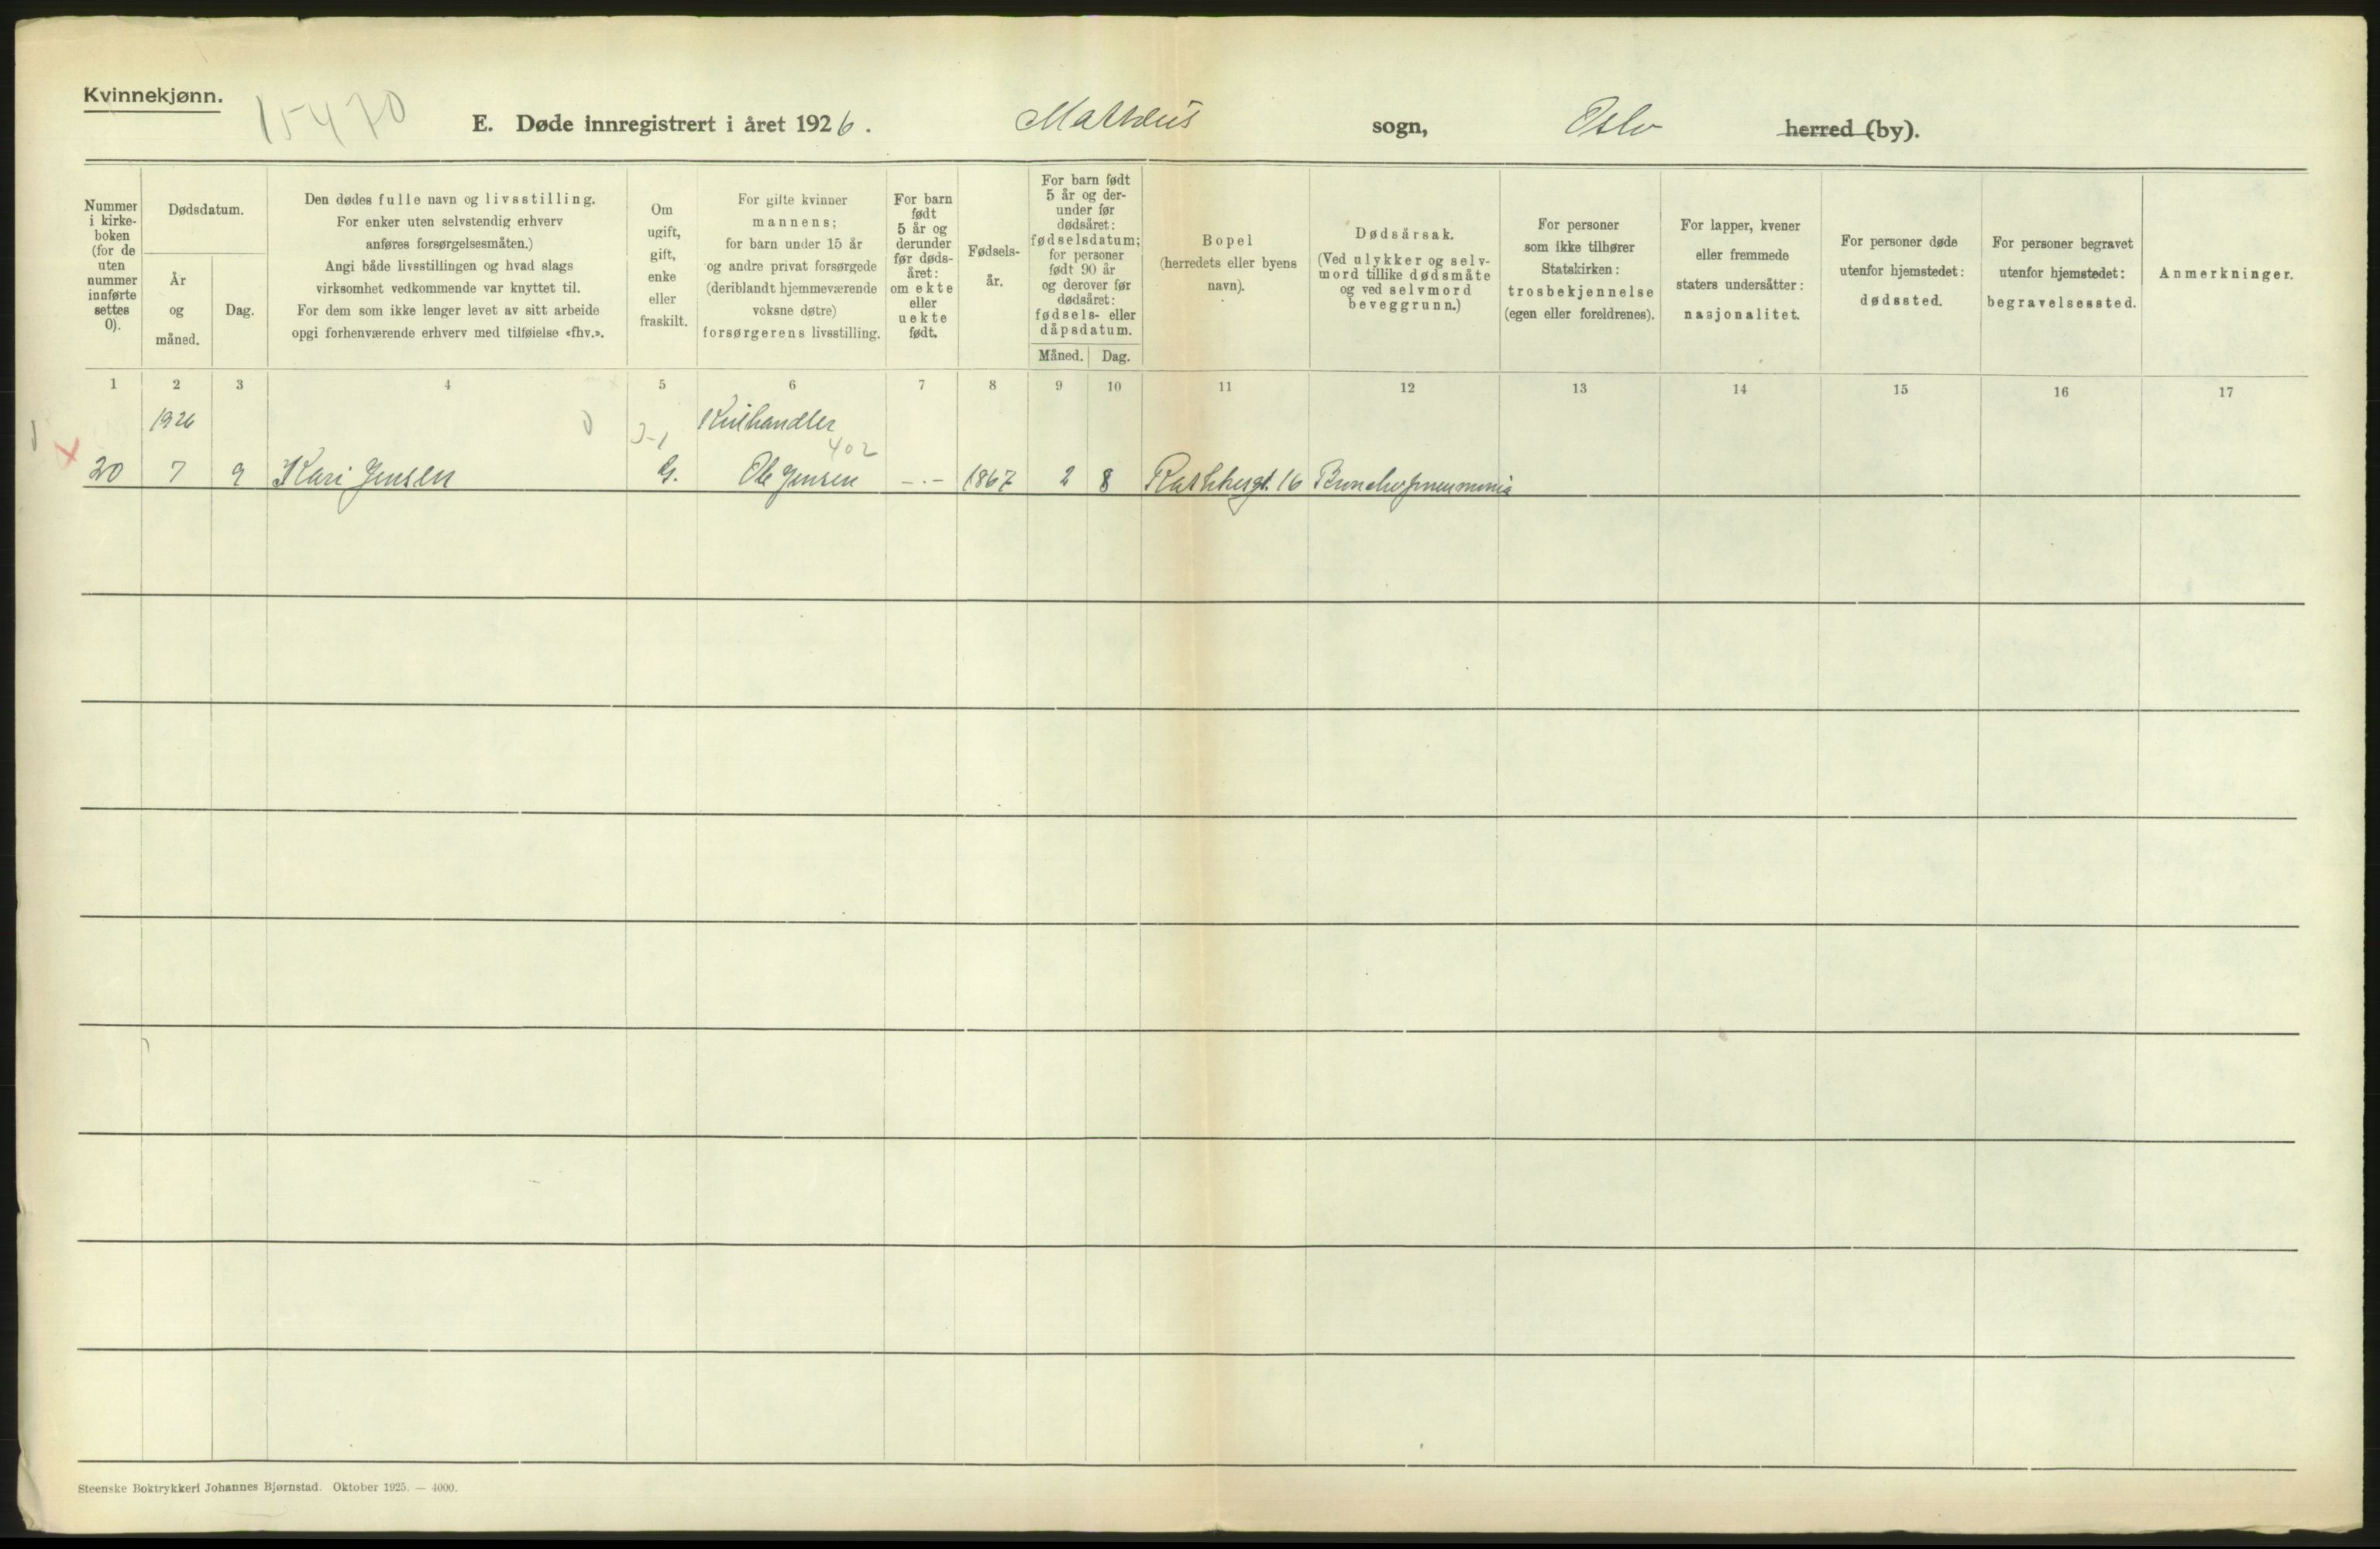 Kvinnekjønn.
15470
E. Døde innregistrert i året 1926. Mathæus sogn, Oslo herred (by).
Nummer
i kirke-
boken
(for de
uten
nummer
innførte
settes
0).
Dødsdatum.
År
og
måned.
Dag.
Den dødes fulle navn og livsstilling.
For enker uten selvstendig erhverv
anføres forsørgelsesmåten.)
Angi både livsstillingen og hvad slags
virksomhet vedkommende var knyttet til.
For dem som ikke lenger levet av sitt arbeide
opgi forhenværende erhverv med tilføielse «fhv.».
Om
ugift,
gift,
enke
eller
fraskilt.
For gifte kvinner
mannens;
for barn under 15 år
og andre privat forsørgede
(deriblandt hjemmeværende
voksne døtre)
forsørgerens livsstilling.
For barn
født
5 år og
derunder
før døds-
året:
om ekte
eller
uekte
født.
Fødsels-
år.
For barn født
5 år og der-
under før
dødsåret:
fødselsdatum;
for personer
født 90 år
og derover før
dødsåret:
fødsels- eller
dåpsdatum.
Måned. Dag.
Bopel
(herredets eller byens
navn).
Dødsårsak.
(Ved ulykker og selv-
mord tillike dødsmåte
og ved selvmord
beveggrunn.)
For personer
som ikke tilhører
Statskirken:
trosbekjennelse
(egen eller foreldrenes).
For lapper, kvener
eller fremmede
staters undersåtter:
nasjonalitet.
For personer døde
utenfor hjemstedet:
dødssted.
For personer begravet
utenfor hjemstedet:
begravelsessted.
Anmerkninger.
1 2 3 4 5 6 7 8 9 10 11 12 13 14 15 16 17
1926 Kulhandler
402
20 7 9 Kari Jensen G. Ole Jensen -.- 1867 2 8 Rathkesgt. 16 Bronchopneumonia
Steenske Boktrykkeri Johannes Bjørnstad. Oktober 1925. — 4000.